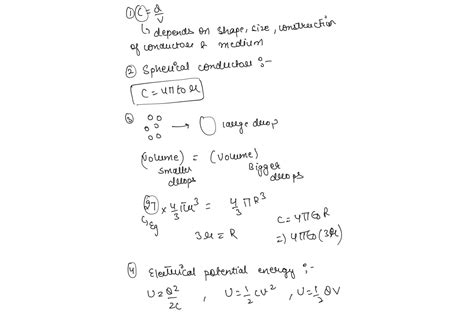 ① C = Q/V
↳ depends on shape, size, construction
of conductor & medium
② Spherical conductor :-
C = 4π∈0 r
③ → large drop
(Volume) smaller drops = (Volume) Bigger drops
27 × 4/3 πr³ = 4/3 πR³
↳ Eg
3r = R
C = 4π∈0 R
=) 4π∈0 (3r)
④ Electrical potential energy :-
U = Q²/2C , U = 1/2 CV² , U = 1/3 QV